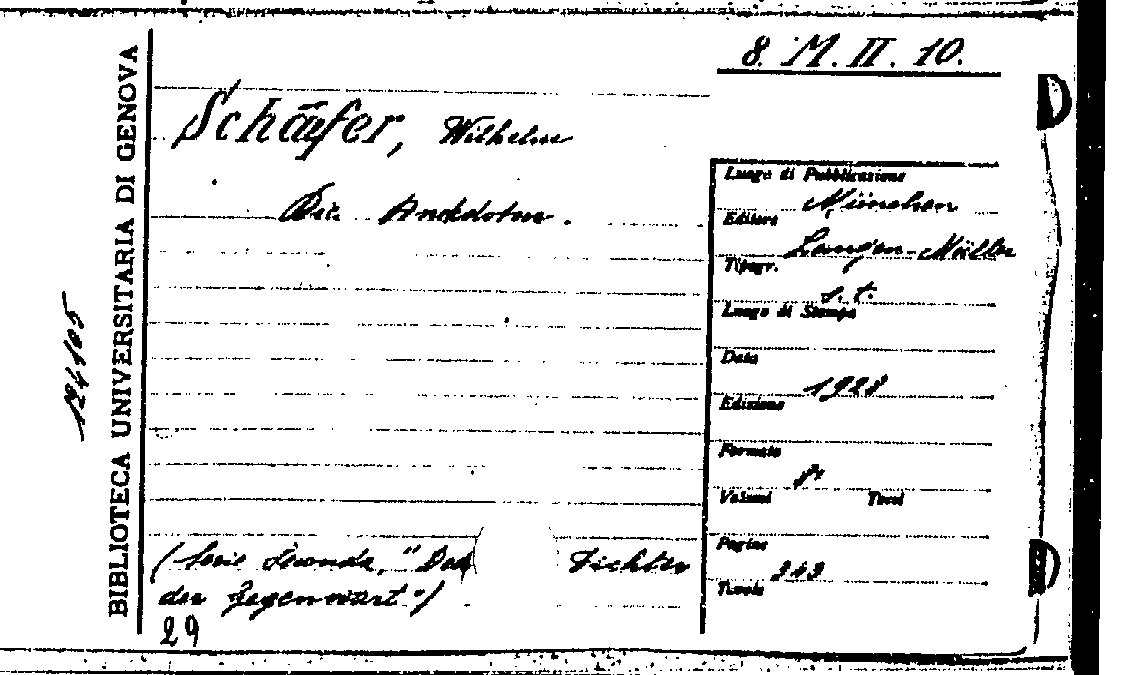 8. M. II. 10.
BIBLIOTECA UNIVERSITARIA DI GENOVA
124105
Schäfer, Wilhelm
Die Anekdoten.
Luogo di Pubblicazione
München
Editore
Langen-Müller
Tipogr.
s.t.
Luogo di Stampa
Data
1928
Edizione
Formato
8°
Volumi Tomi
Pagine
343
Tavole
(Serie seconda, "Das Dichter
der Gegenwart")
29